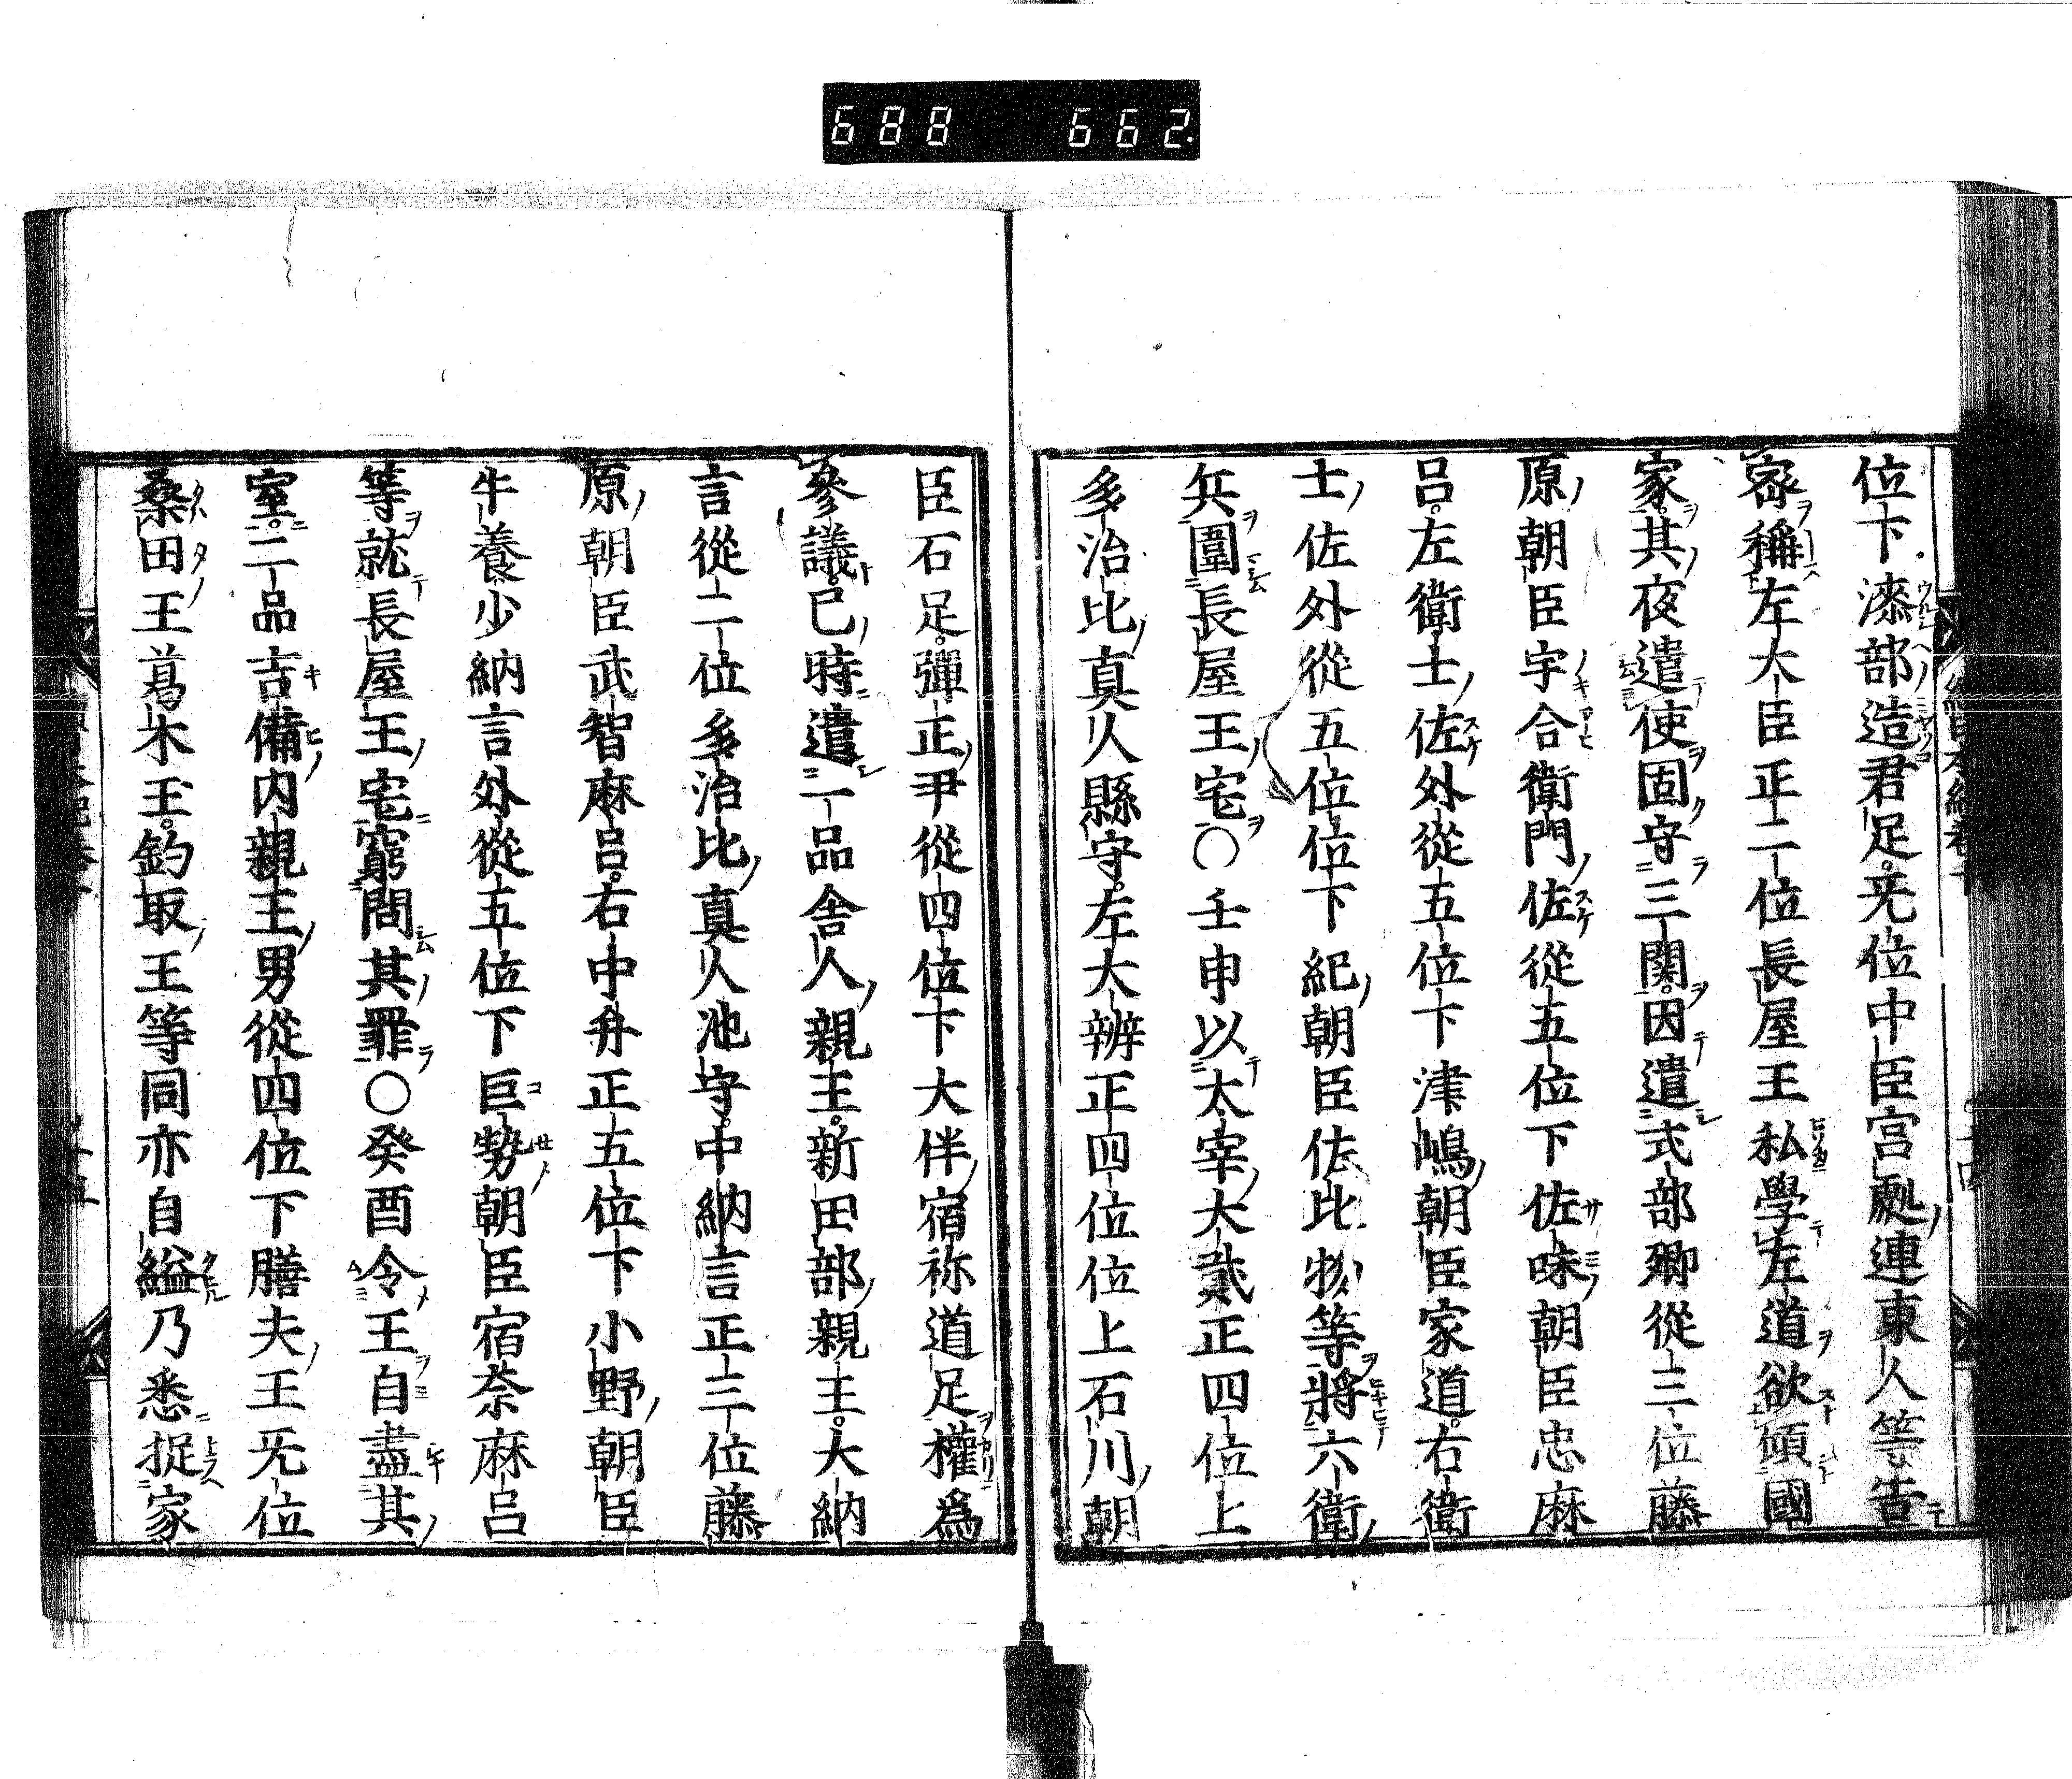 688 662
位下漆部造君足。无位中臣宮處連東人等告
密稱左大臣正二位長屋王私學左道欲傾國
家。其夜遣使固守三関。因遣式部卿從三位藤
原朝臣宇合衛門佐從五位下佐味朝臣忠麻
呂。左衛士佐外從五位下津嶋朝臣家道。右衛
士佐外從五位位下紀朝臣佐比物等將六衛
兵圍長屋王宅〇壬申以太宰大貳正四位上
多治比真人縣守。左大辨正四位位上石川朝
臣石足。彈正尹從四位下大伴宿祢道足權爲
參議。巳時遣一品舎人親王。新田部親王。大納
言從二位多治比真人池守。中納言正三位藤
原朝臣武智麻呂。右中弁正五位下小野朝臣
牛養少納言外從五位下巨勢朝臣宿奈麻呂
等就長屋王宅窮問其罪〇癸酉令王自盡其
室。二品吉備内親王男從四位下膳夫王无位
桑田王葛木王。釣取王等同亦自縊乃悉捉家